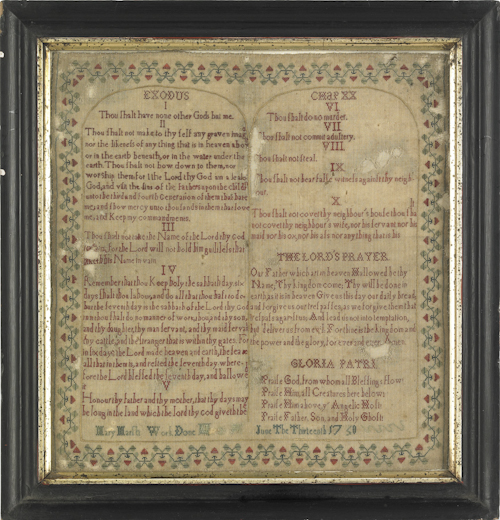 EXODUS
I
Thou shalt have none other Gods but me.
II
Thou shalt not make to thy self any graven
nor the likeness of any thing that is in heaven
or in the earth beneath, or in the water under the
earth. Thou shalt not bow down to them, nor
worship them for I the Lord thy God am a
God and visit the sins of the Fathers upon the
unto the third and fourth Generation of them that hate
me, and shew mercy unto
me, and Keep my commandments.
III
Thou shalt not take the Name of the Lord thy God
for the Lord will not hold him guiltless that
Name in vain.
IV
Remember thou Keep holy the sabbath day, six
days shalt thou labour, and do all that thou hast to do
but the seventh day is the sabbath of the Lord thy God
thou shalt do no manner of work, thou, and thy son,
and thy daughter, thy man servant, and thy maid servant
thy cattle, and the stranger that is within thy gates. For
in six days the Lord made heaven and earth, the sea
all that in them is, and rested the seventh day, where
fore the Lord blessed the seventh day, and hallowed
it
V
Honour thy father and thy mother, that thy days may
be long in the land which the lord thy God giveth thee
Mary March Work Done
CHAP XX
VI
Thou shalt do no murder.
VII
Thou shalt not commit adultery.
VIII
Thou shalt not steal.
IX
Thou shalt not bear false witness against thy neigh
bour.
X
Thou shalt not covet thy neighbour's house thou shalt
not covet thy neighbour's wife, nor his servant nor his
maid nor his ox, nor his ass nor any thing that is his
THE LORD'S PRAYER
Our Father which art in heaven Hallowed be thy
Name, Thy kingdom come, Thy will be done in
earth as it is in heaven Give us this day our daily bread,
and forgive us our trespasses, as we forgive them that
trespass against us, And lead us not into temptation,
but deliver us from evil For thine is the kingdom and
the power and the glory, for ever and ever Amen.
GLORIA PATRI
Praise God, from whom all Blessings flow:
Praise Him, all Creatures here below:
Praise Him above yᵉ Angelic Host:
Praise Father, Son, and Holy Ghost:
June The Thirteenth